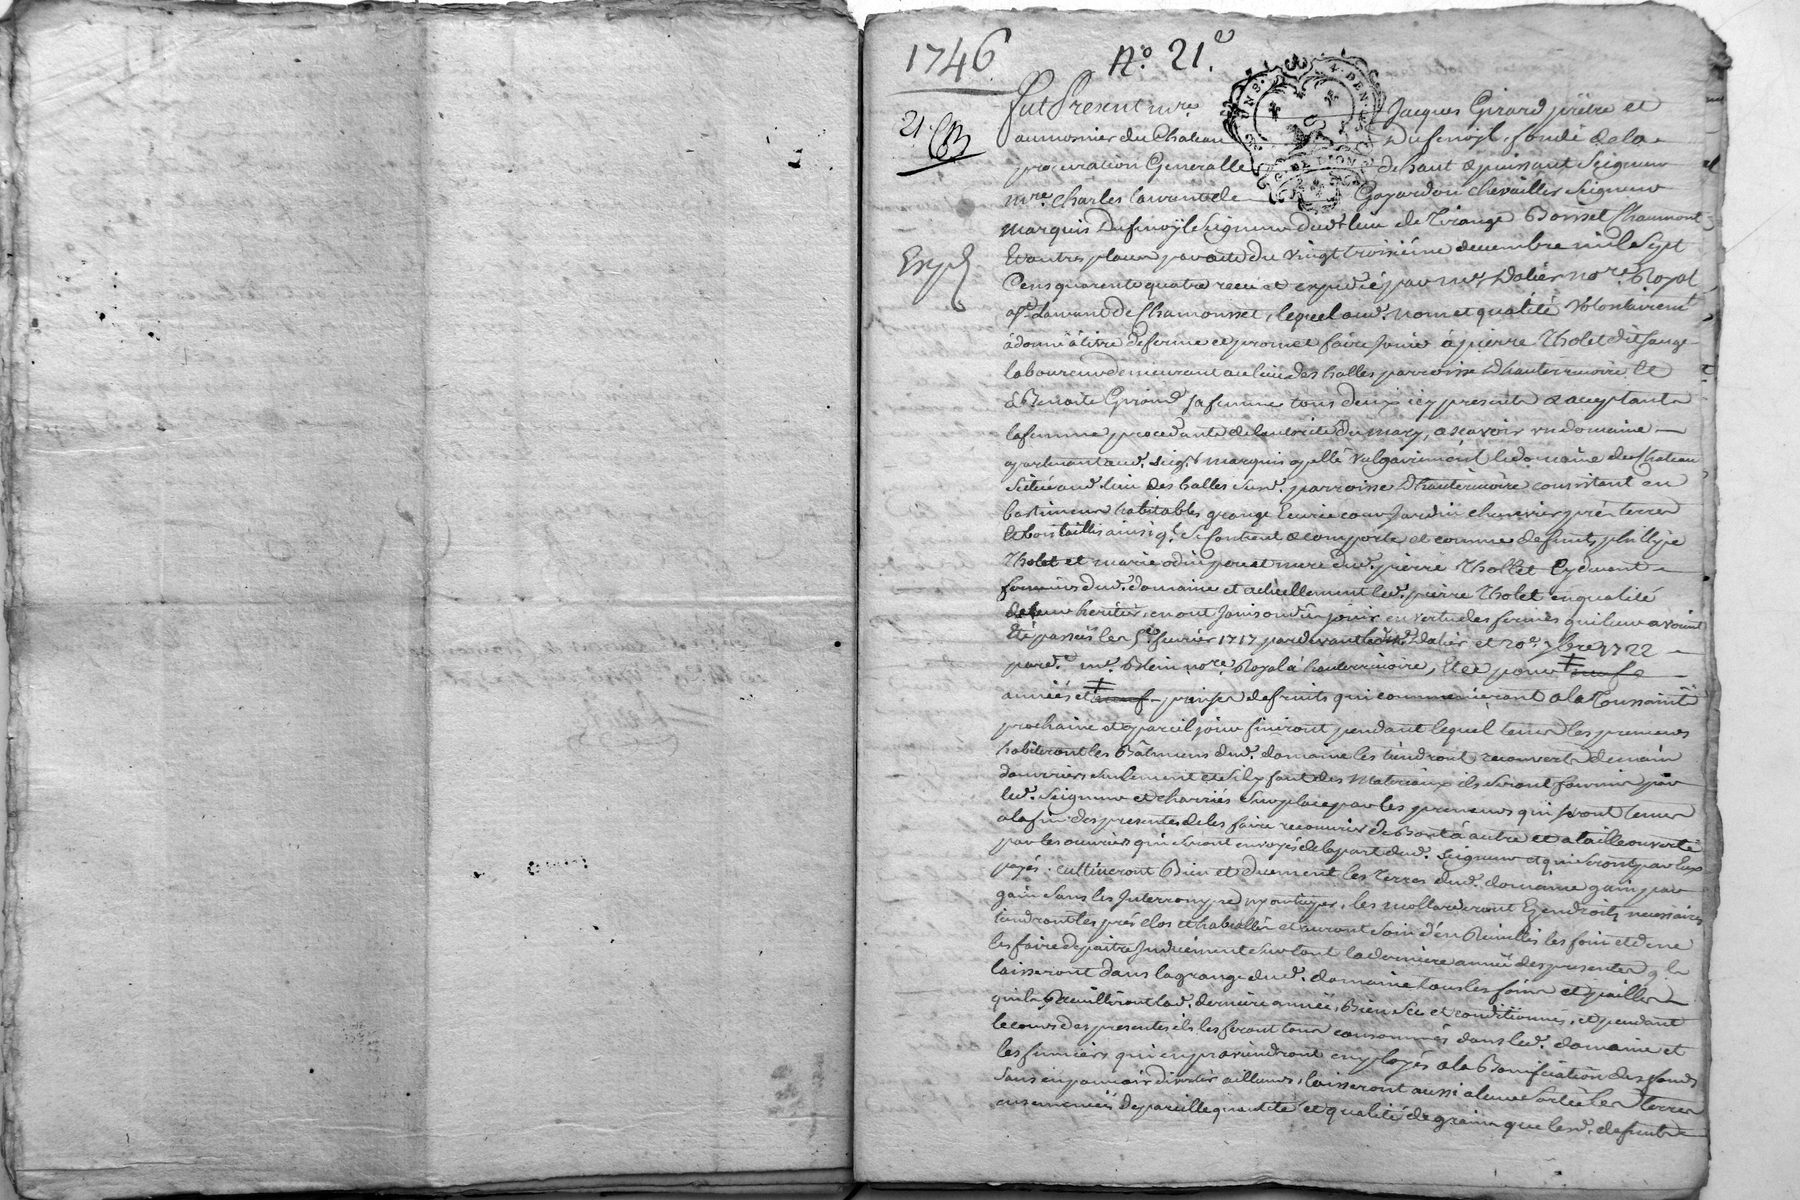 1746
N.º 21.e
21.
Exp.
fut Present m.re Jacques Girard prêtre et
aumosnier du Chateau Dufenoÿl, fondé de la
procuration Generalle de haut & puissant Seigneur
m.re Charles Laurent de Gayardon chevallier Seigneur
Marquis Dufenoÿl Seigneur dud. lieu de Tirange Boisset Chaumont
Et autres places par acte du vingt troisiéme decembre mil Sept
Cens quarente quatre receu et expedié par m.e Dalier no.re Royal
a S.t Laurent de Chamousset, lequel aud. nom et qualité Volontairem.t
à donné à titre de ferme et promet faire Jouir à pierre Tholet dit Sauge
laboureur demeurant au lieu des halles parroisse Dhauterivoire Et
à Benoite Girard Sa femme tous deux icy presents & acceptants
la femme procedante de lautorité du mary, a scavoir un domaine
apartenant aud. Seig.r marquis apellé Vulgairement le domaine du Chateau
Scitué aud. lieu des halles Susd. parroisse Dhauterivoire consistant en
bastiments habitables grange Ecurie cour Jardin cheneviers prés terres
Et bois taillis ainsi q.l Se contient & comporte et comme defunts phillipe
Tholet et marie odin pere et mere dud. pierre Thollet Cydevant
fermiers dud. domaine et actuellement led. pierre Tholet en qualité
de leur heritier, en ont Joui ou dû jouir en vertu des fermes qui leur avoient
Eté passées les 5.e fevrier 1717 par devant led. m.e Dalier et 20.e 7bre 1722
pard.t me. Blein no.re Royal à hauterivoire, Et ce pour neuf
années et neuf prises de fruits qui commenceront a la Toussaint
prochaine et a pareil jour finiront pendant lequel tems les preneurs
habiteront les Bâtimens dud. domaine les tiendront recouverts de main
douvriers Seulement et S'il y faut des Materiaux ils Seront fournis par
led. Seigneur et charriés Sur place par les preneurs qui seront tenus
a la fin des presentes de les faire recouvrir de Bout à autre et a taille ouverte
par les ouvriers qui Seront envoyés de la part dud. Seigneur et qui Seront par Eux
payés: cultiveront Bien et Duement les Terres dud. domaine gain par
gain Sans les Interrompre ny outrager, les mollarderont Es endroits necessaires
tiendront les prés clos et habeallés et auront Soin d'en Recuillir les foins et de ne
les faire depaitre Induement Surtout la derniere année des presentes q.ls
laisseront dans la grange dud. domaine tous les foins et pailles
quils Recuilliront lad. derniere année, Bien Sec et conditionnés, et pendant
le cours des presentes ils les feront tous consommés dans led. domaine et
les fumiers qui en proviendront employés a la Bonification des fonds
Sans en pouvoir divertir ailleurs, laisseront aussi a leur Sortie les terres
ensemencées de pareille quantité et qualité de grains que lesd. defunts